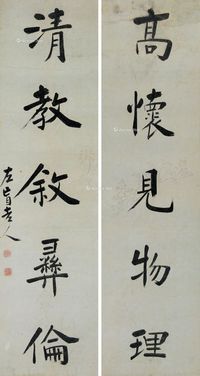 高懷見物理
清教敘彞倫
左盲老人